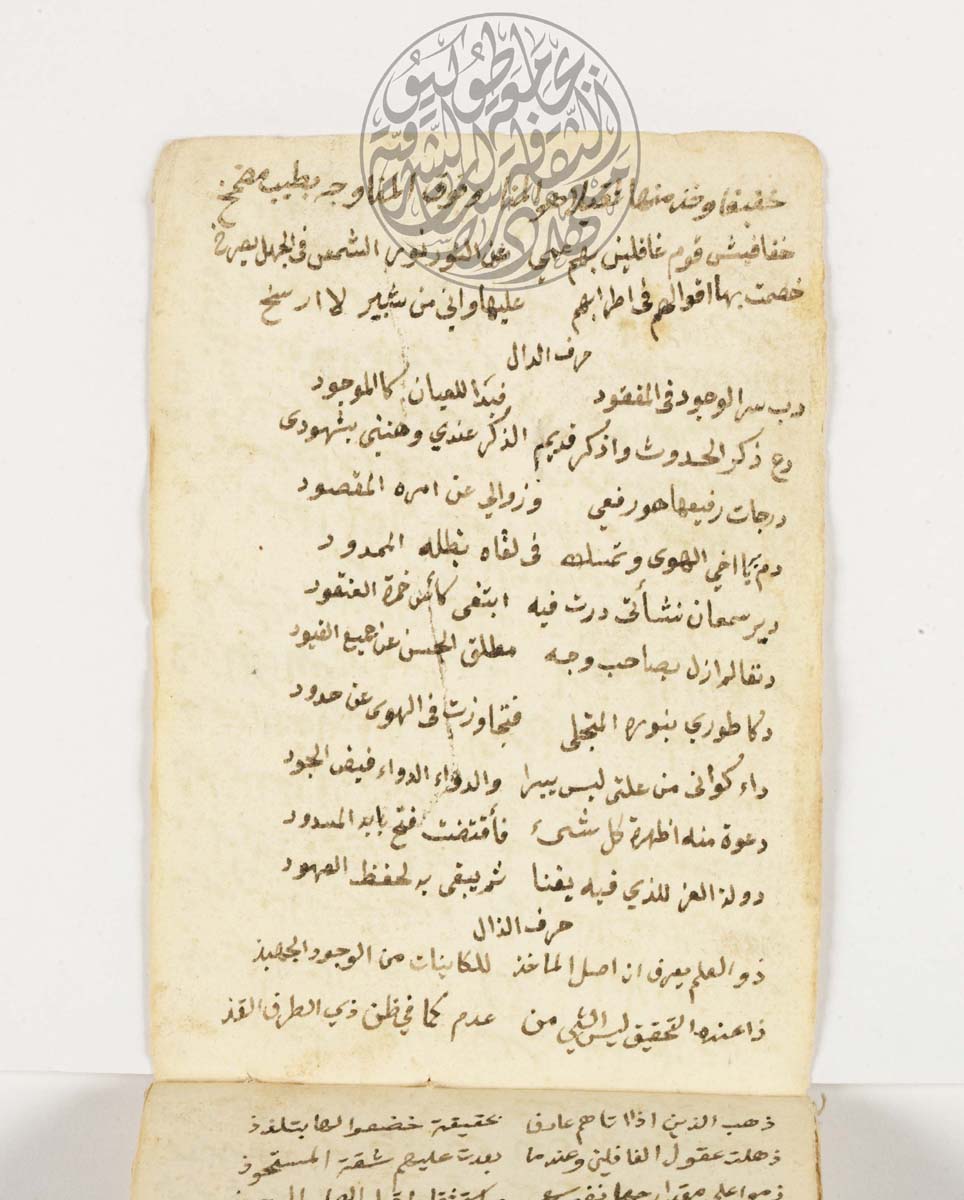 خفيفا وخذ منها ثقيلا هو المنا وفوق المنا وجه بطيب مضمخ
خفافيش قوم غافلين بهم عمي عن النور نور الشمس في الجهل يصرخ
خصمت بها اقوالهم في اطرابهم عليها واني من ثبير لا ارسخ
حرف الدال
دب سر الوجود في المفقود فبدا للعيان كالموجود
دع ذكر الحدوث واذكر قديم الذكر عندي وهنني بشهودي
درجات رفيعها هو رفعي وزوالي عن امره المقصود
دم يا اخي الهوى وتمسك في لقاه بظله الممدود
دير سمعان نشأتي درت فيه ابتغى كأس خمرة العنقود
دنفا لم ازل بصاحب وجه مطلق الحسن عن جميع القيود
دكا طوري بنوره المتجلى فتجاوزت في الهوى عن حدود
داء كواني من علتي ليس يبرا والدواء الدواء فيض الجود
دعوة منه اظهرة كل شيء فأقتضت فتح بابه المسدود
دولة العز للذي فيه يفنا ثم يبقى به لحفظ العهود
حرف الذال
ذو العلم يعرف ان اصل الماخذ للكاينات من الوجود الجهبذ
ذا عنده التحقيق ليس الشي من عدم كما في ظن ذي الطرف القذ
ذهب الذين اذا اتاهم عارف بحقيقة خضعوا لها بتلذذ
ذهلت عقول الغافلين وعندما بعدت عليهم شقة المستحوذ